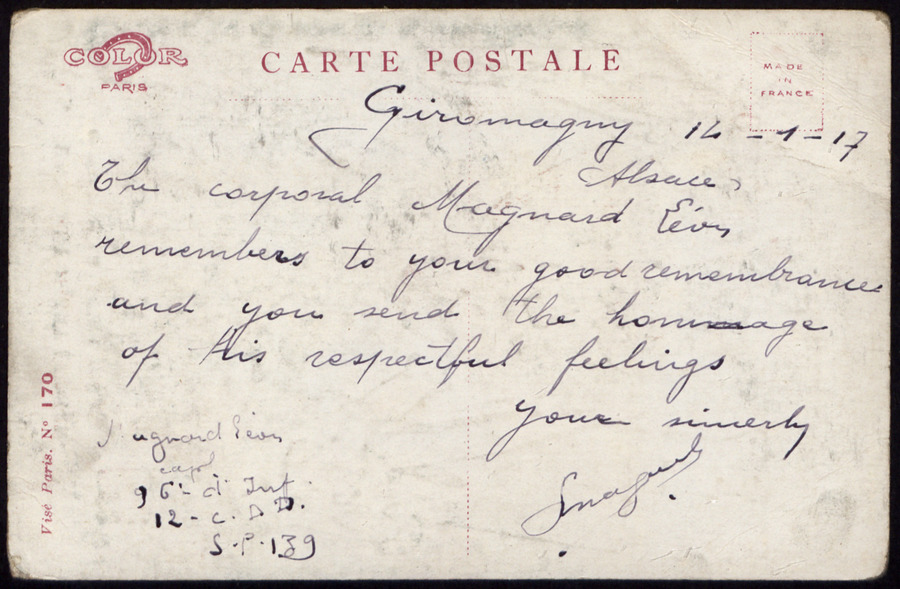 COLOR
PARIS
CARTE POSTALE
MADE
IN
FRANCE
Giromagny 12-1-17
Alsace
The corporal Magnard Léon
remembers to your good remembrance
and you send the hommage
of his respectful feelings
your sincerly
Magnard Léon
capl
96e d'Inf.
12-C.D.D.
S.P.139
Visé Paris. No 170